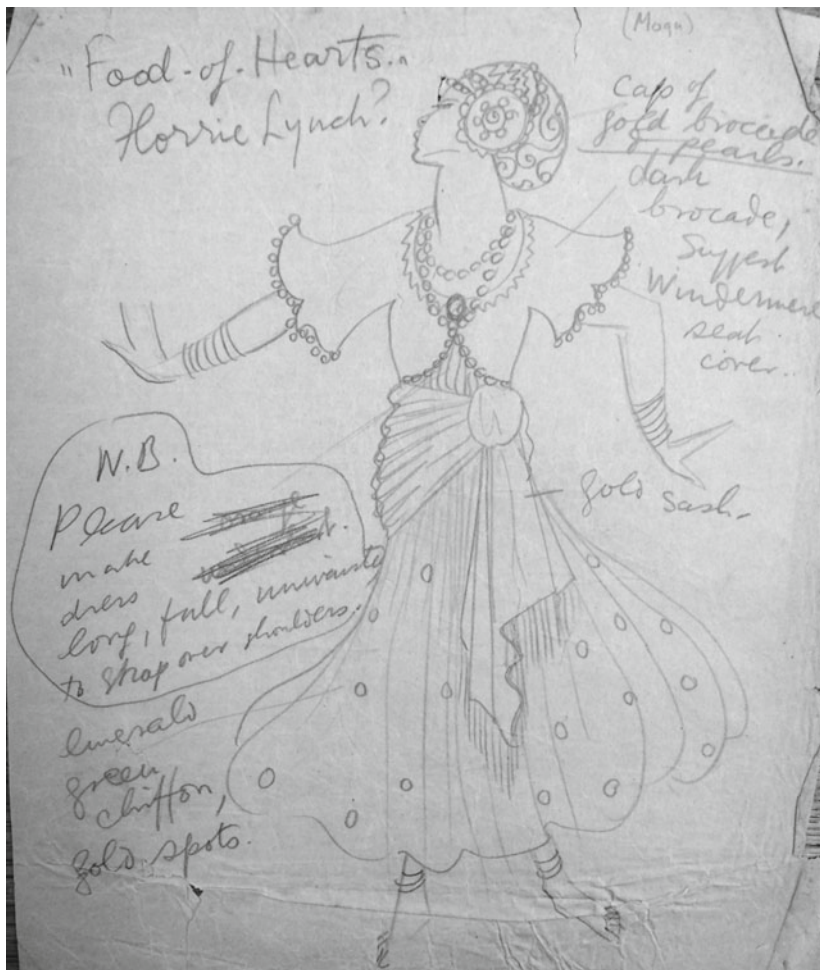 (Mogu)
"Food-of-Hearts."
Horrie Lynch?
Cap of
gold brocade
& pearls.
dark
brocade,
Suggest
Windermere
seat
cover.
gold sash.
N.B.
Please
make
dress
long, full,
to strap over shoulders.
emerald
green
chiffon,
gold spots.